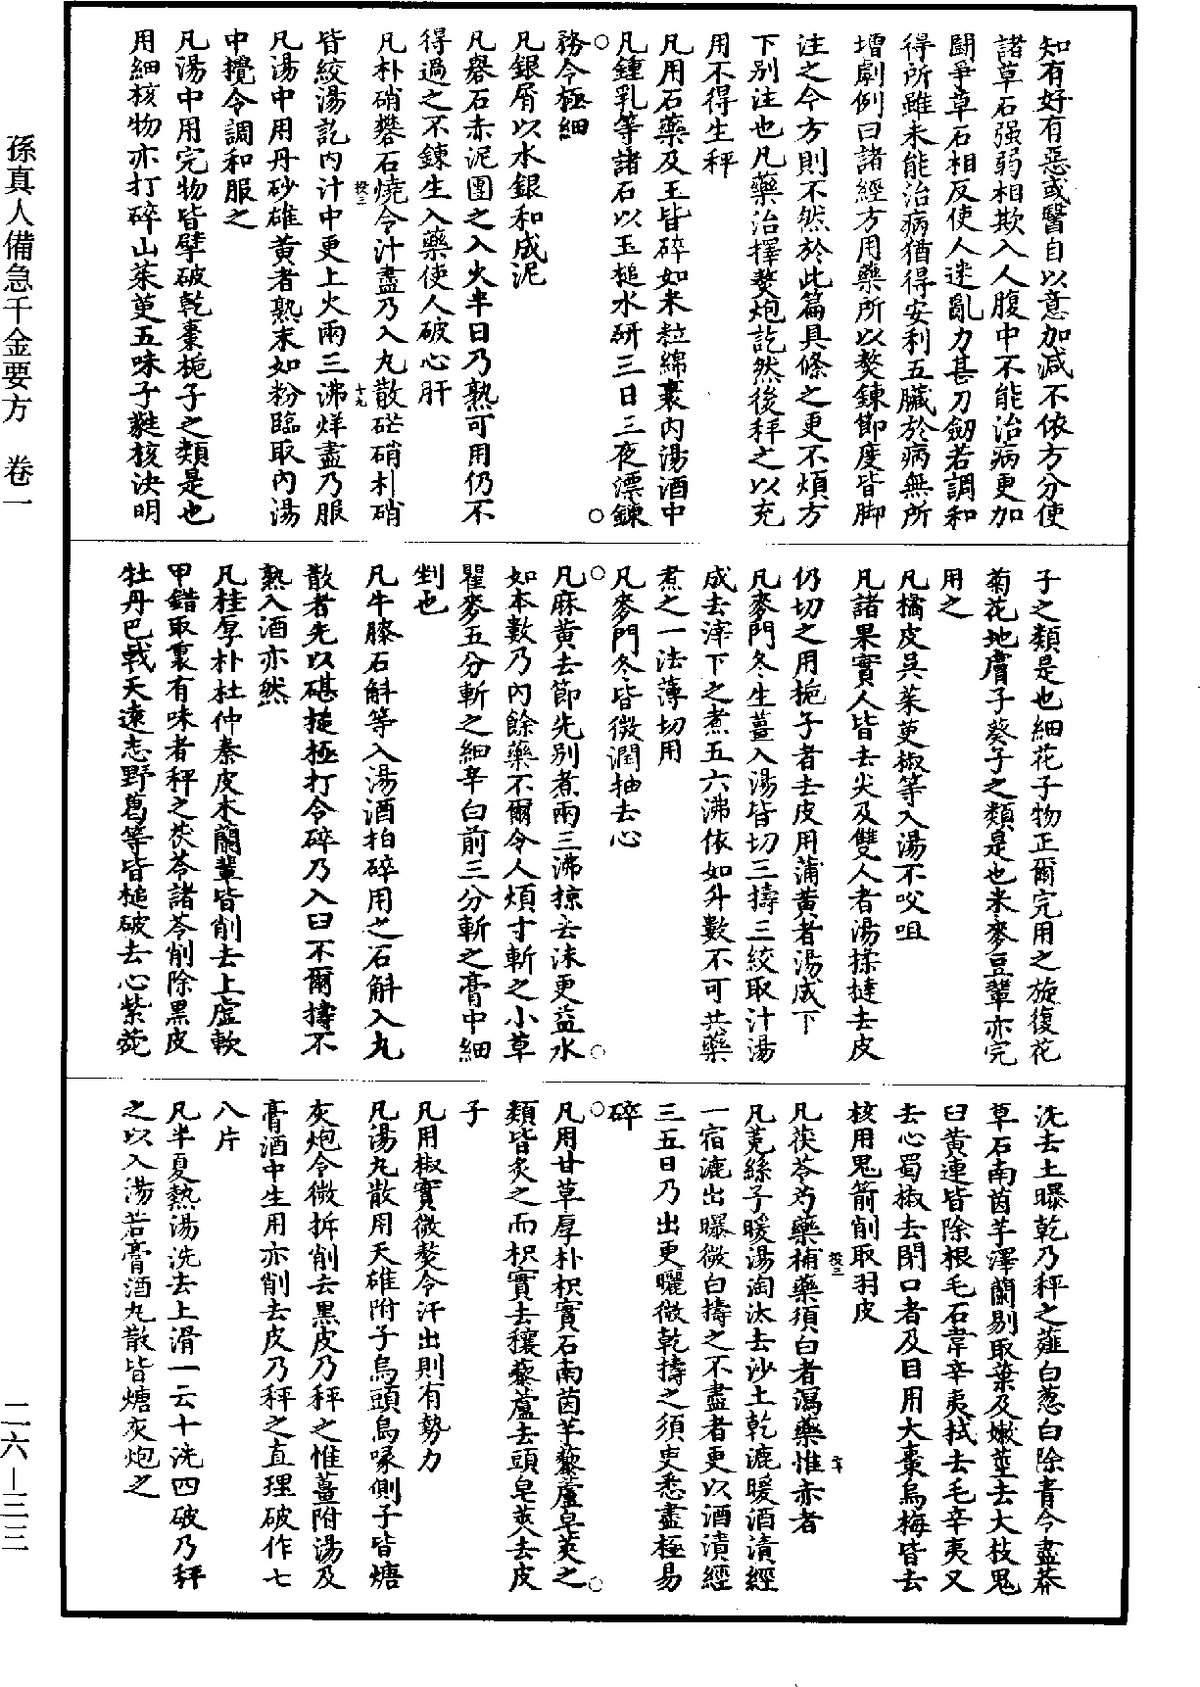 知有好有惡或醫自以意加減不依方分使
諸草石强弱相欺入人腹中不能治病更加
鬬爭草石相反使人迷亂力甚刀劒若調和
得所雖未能治病猶得安利五臟於病無所
增劇例曰諸經方用藥所以熬鍊節度皆脚
注之今方則不然於此篇具條之更不煩方
下別注也凡藥治擇熬炮訖然後秤之以充
用不得生秤
凡用石藥及玉皆碎如米粒綿裹内湯酒中
凡鍾乳等諸石以玉槌水研三日三夜漂鍊
務令極細
凡銀屑以水銀和成泥
凡礜石赤泥團之入火半日乃熟可用仍不
得過之不鍊生入藥使人破心肝
凡朴硝礬石燒令汁盡乃入丸散芒硝朴硝
皆絞湯訖内汁中更上火兩三沸烊盡乃服
凡湯中用丹砂雄黃者熟末如粉臨取内湯
中攪令調和服之
凡湯中用完物皆擘破乾棗梔子之類是也
用細核物亦打碎山茱萸五味子蕤核決明
子之類是也細花子物正爾完用之旋復花
菊花地膚子葵子之類是也米麥豆輩亦完
用之
凡橘皮吳茱萸椒等入湯不㕮咀
凡諸果實人皆去尖及雙人者湯揉撻去皮
仍切之用梔子者去皮用蒲黃者湯成下
凡麥門冬生薑入湯皆切三擣三絞取汁湯
成去滓下之煮五六沸依如升數不可共藥
煮之一法薄切用
凡麥門冬皆微潤抽去心
凡麻黃去節先別煮兩三沸掠去沫更益水
如本數乃内餘藥不爾令人煩寸斬之小草
瞿麥五分斬之細辛白前三分斬之膏中細
剉也
凡牛膝石斛等入湯酒拍碎用之石斛入丸
散者先以碪槌極打令碎乃入臼不爾擣不
熟入酒亦然
凡桂厚朴杜仲秦皮木蘭輩皆削去上虛軟
甲錯取裏有味者秤之茯苓諸苓削除黑皮
牡丹巴戟天遠志野葛等皆槌破去心紫菀
洗去土曝乾乃秤之薤白葱白除青令盡莽
草石南茵芋澤蘭剔取葉及嫩莖去大枝鬼
臼黃連皆除根毛石韋辛夷拭去毛辛夷又
去心蜀椒去閉口者及目用大棗烏梅皆去
核用鬼箭削取羽皮
凡茯苓芍藥補藥須白者瀉藥惟赤者
凡菟絲子暖湯淘汰去沙土乾漉暖酒漬經
一宿漉出曝微白擣之不盡者更以酒漬經
三五日乃出更曬微乾擣之須臾悉盡極易
碎
凡用甘草厚朴枳實石南茵芋藜蘆皂莢之
類皆炙之而枳實去穰藜蘆去頭皂莢去皮
子
凡用椒實微熬令汗出則有勢力
凡湯丸散用天雄附子烏頭烏喙側子皆煻
灰炮令微拆削去黑皮乃秤之惟薑附湯及
膏酒中生用亦削去皮乃秤之直理破作七
八片
凡半夏熱湯洗去上滑一云十洗四破乃秤
之以入湯若膏酒丸散皆煻灰炮之
孫真人備急千金要方 卷一
二六—三三